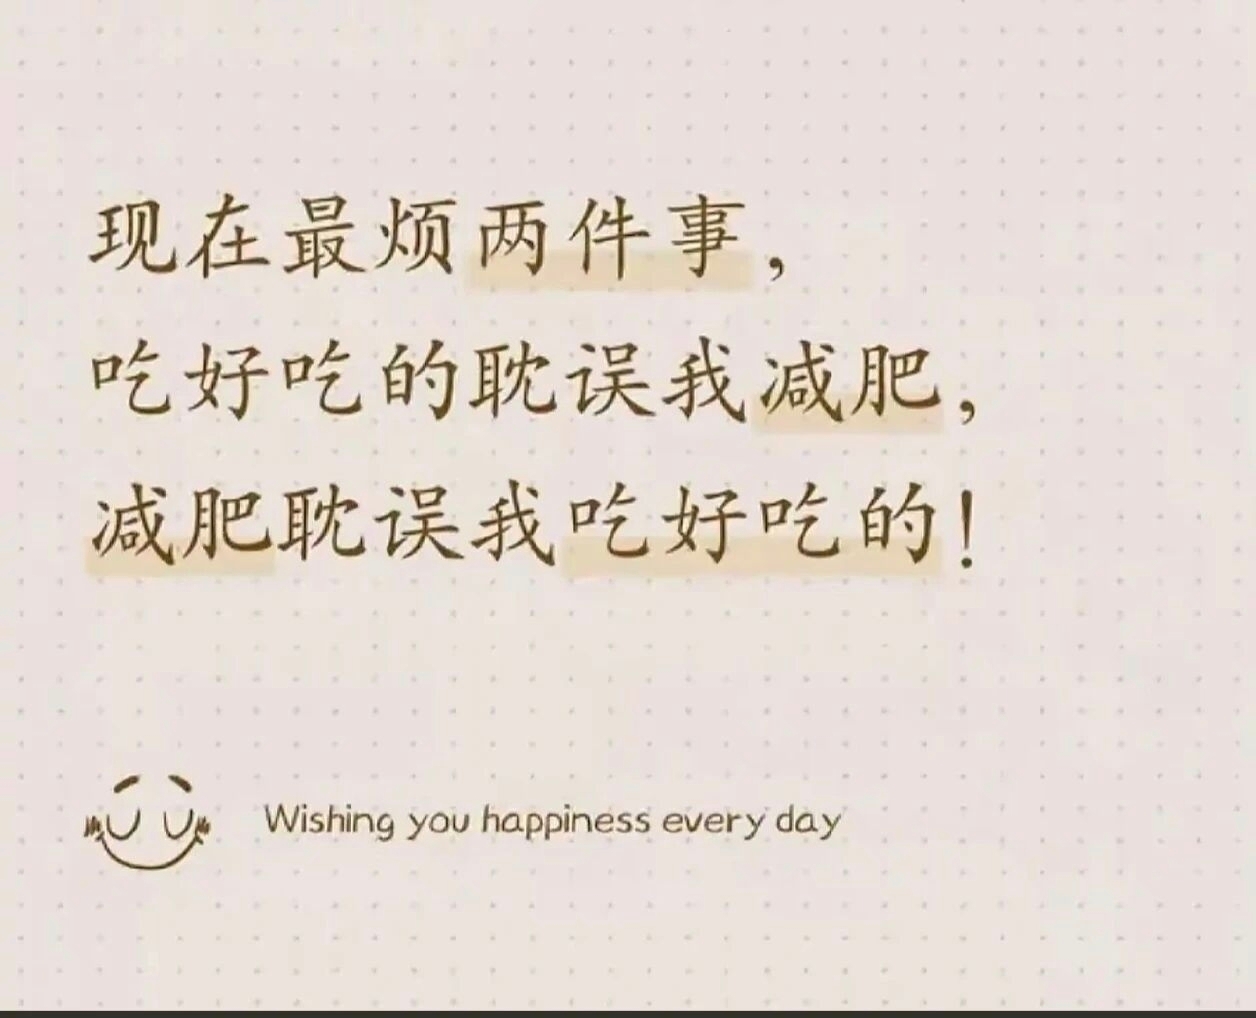 现在最烦两件事，
吃好吃的耽误我减肥，
减肥耽误我吃好吃的！
Wishing you happiness every day